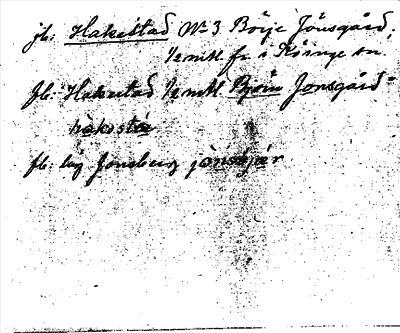 jb: Hakestad No 3 Börje Jönsgård,
1/2 mtl. fr. i Köinge sn.
fb: Hakestad 1/2 mtl Björn Jonsgård
håkosta
fb: by Jonsberg jònsgàr